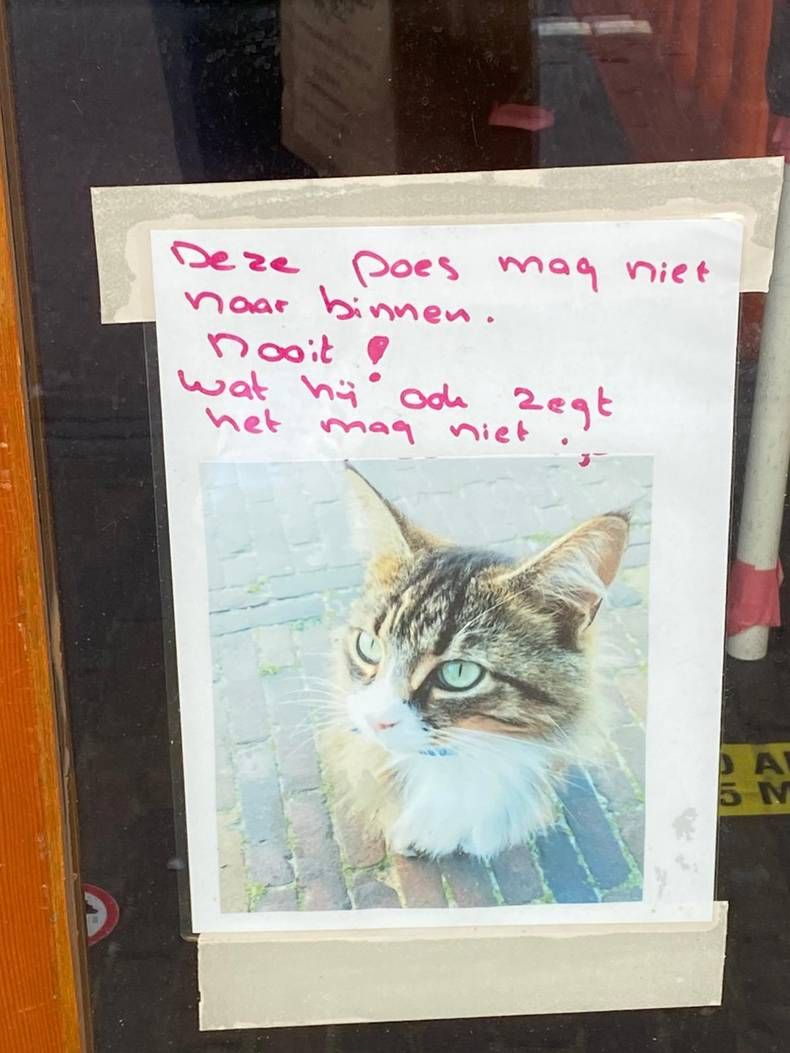 Deze poes mag niet
naar binnen.
nooit!
wat hij ook zegt
het mag niet